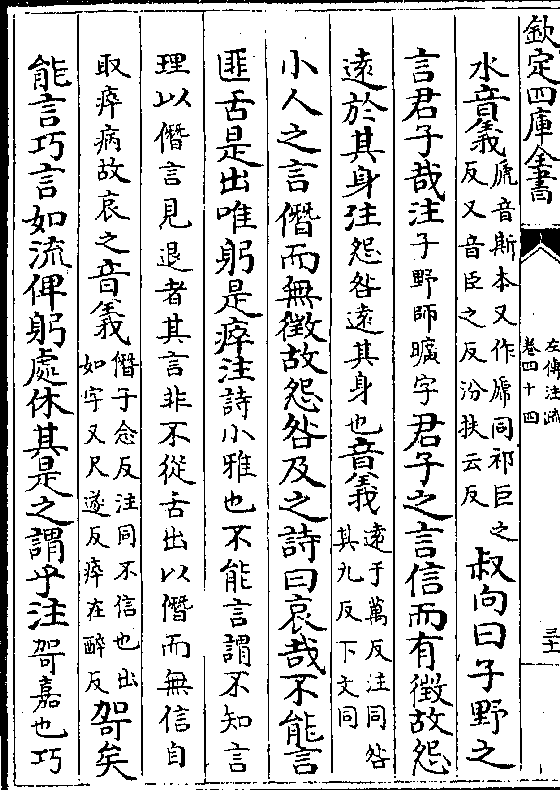 欽定四庫全書
左傳注疏
卷四十四
水音義虒音斯本又作虒同祁巨之
反又音臣之反汾扶云反叔向曰子野之
言君子哉注子野師曠字君子之言信而有徵故怨
遠於其身注怨咎遠其身也音義遠于萬反注同咎
其九反下文同
小人之言僭而無徵故怨咎及之詩曰哀哉不能言
匪舌是出唯躬是瘁注詩小雅也不能言謂不知言
理以僭言見退者其言非不從舌出以僭而無信自
取瘁病故哀之音義僭子念反注同不信也出
如字又尺遂反瘁在醉反哿矣
能言巧言如流俾躬處休其是之謂乎注哿嘉也巧